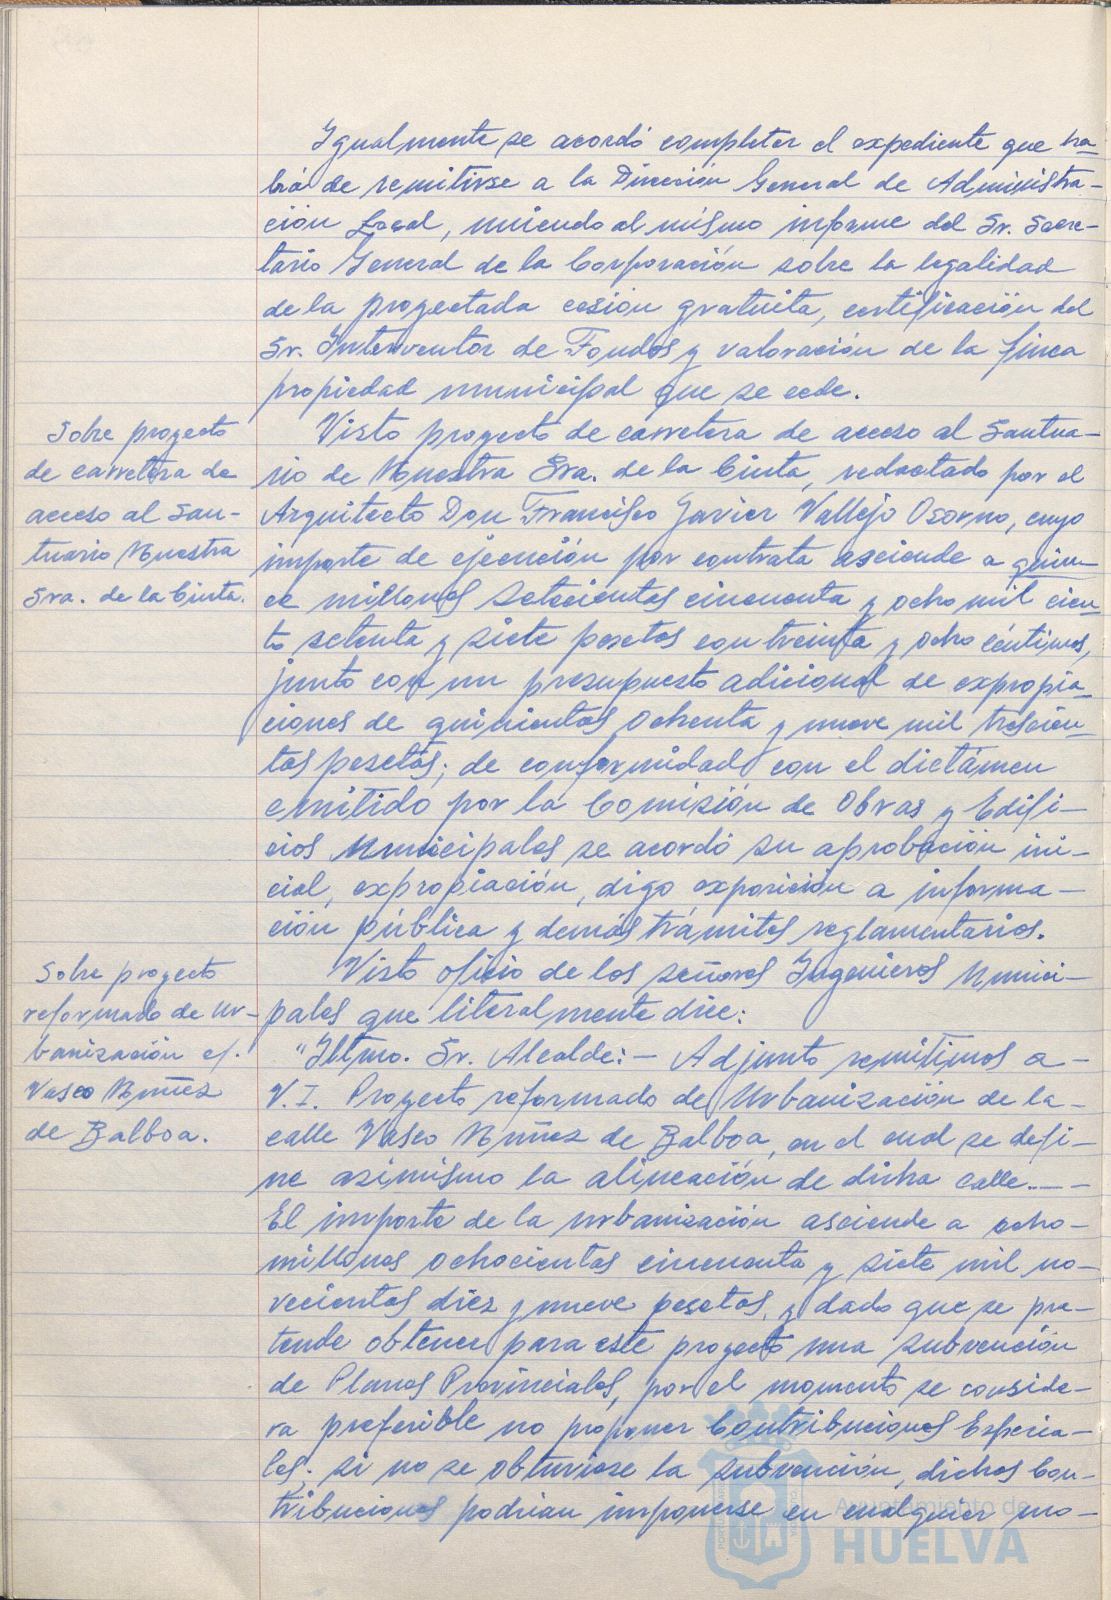 Igualmente se acordó completar el expediente que ha-
brá de remitirse a la Dirección General de Administra-
ción Local, uniendo al mismo informe del Sr. Secre-
tario General de la Corporación sobre la legalidad
de la proyectada cesión gratuita, certificación del
Sr. Interventor de Fondos y valoración de la finca
propiedad municipal que se cede.
Sobre proyecto
de carretera de
acceso al San-
tuario Nuestra
Sra. de la Cinta.
Visto proyecto de carretera de acceso al Santua-
rio de Nuestra Sra. de la Cinta, redactado por el
Arquitecto Don Francisco Javier Vallejo Osorno, cuyo
importe de ejecución por contrata asciende a quin-
ce millones setecientas cincuenta y ocho mil cien-
to setenta y siete pesetas con treinta y ocho céntimos,
junto con un presupuesto adicional de expropia-
ciones de quinientas ochenta y nueve mil trescien-
tas pesetas; de conformidad con el dictámen
emitido por la Comisión de Obras y Edifi-
cios Municipales se acordó su aprobación ini-
cial, expropiación, digo exposición a informa-
ción pública y demás trámites reglamentarios.
Sobre proyecto
reformado de Ur-
banización c/.
Vasco Nuñez
de Balboa.
Visto oficio de los señores Ingenieros Munici-
pales que literalmente dice:
"Iltmo. Sr. Alcalde:- Adjunto remitimos a-
V.I. Proyecto reformado de Urbanización de la-
calle Vasco Nuñez de Balboa, en el cual se defi-
ne asimismo la alineación de dicha calle.--
El importe de la urbanización asciende a ocho-
millones ochocientas cincuenta y siete mil no-
vecientas diez y nueve pesetas, y dado que se pre-
tende obtener para este proyecto una subvención
de Planes Provinciales, por el momento se conside-
ra preferible no proponer Contribuciones Especia-
les; si no se obtuviese la subvención, dichas Con-
tribuciones podrían imponerse en cualquier mo-
Ayuntamiento de
HUELVA